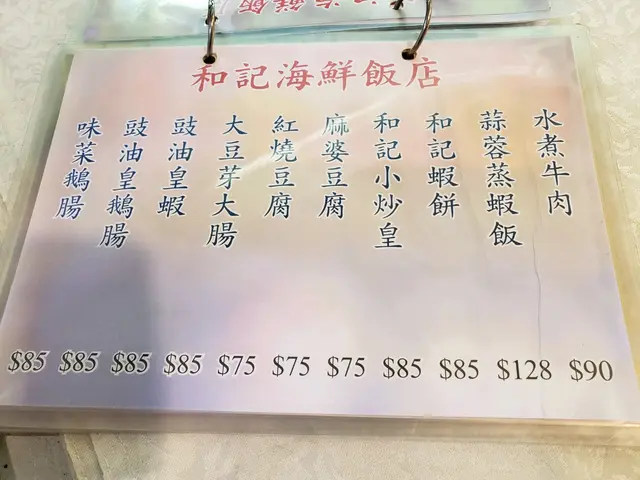 和記海鮮飯店
水煮牛肉
蒜蓉蒸蝦飯
和記蝦餅
和記小炒皇
麻婆豆腐
紅燒豆腐
大豆芽大腸
豉油皇蝦
豉油皇鵝腸
味菜鵝腸
$85 $85 $85 $85 $75 $75 $75 $85 $85 $128 $90